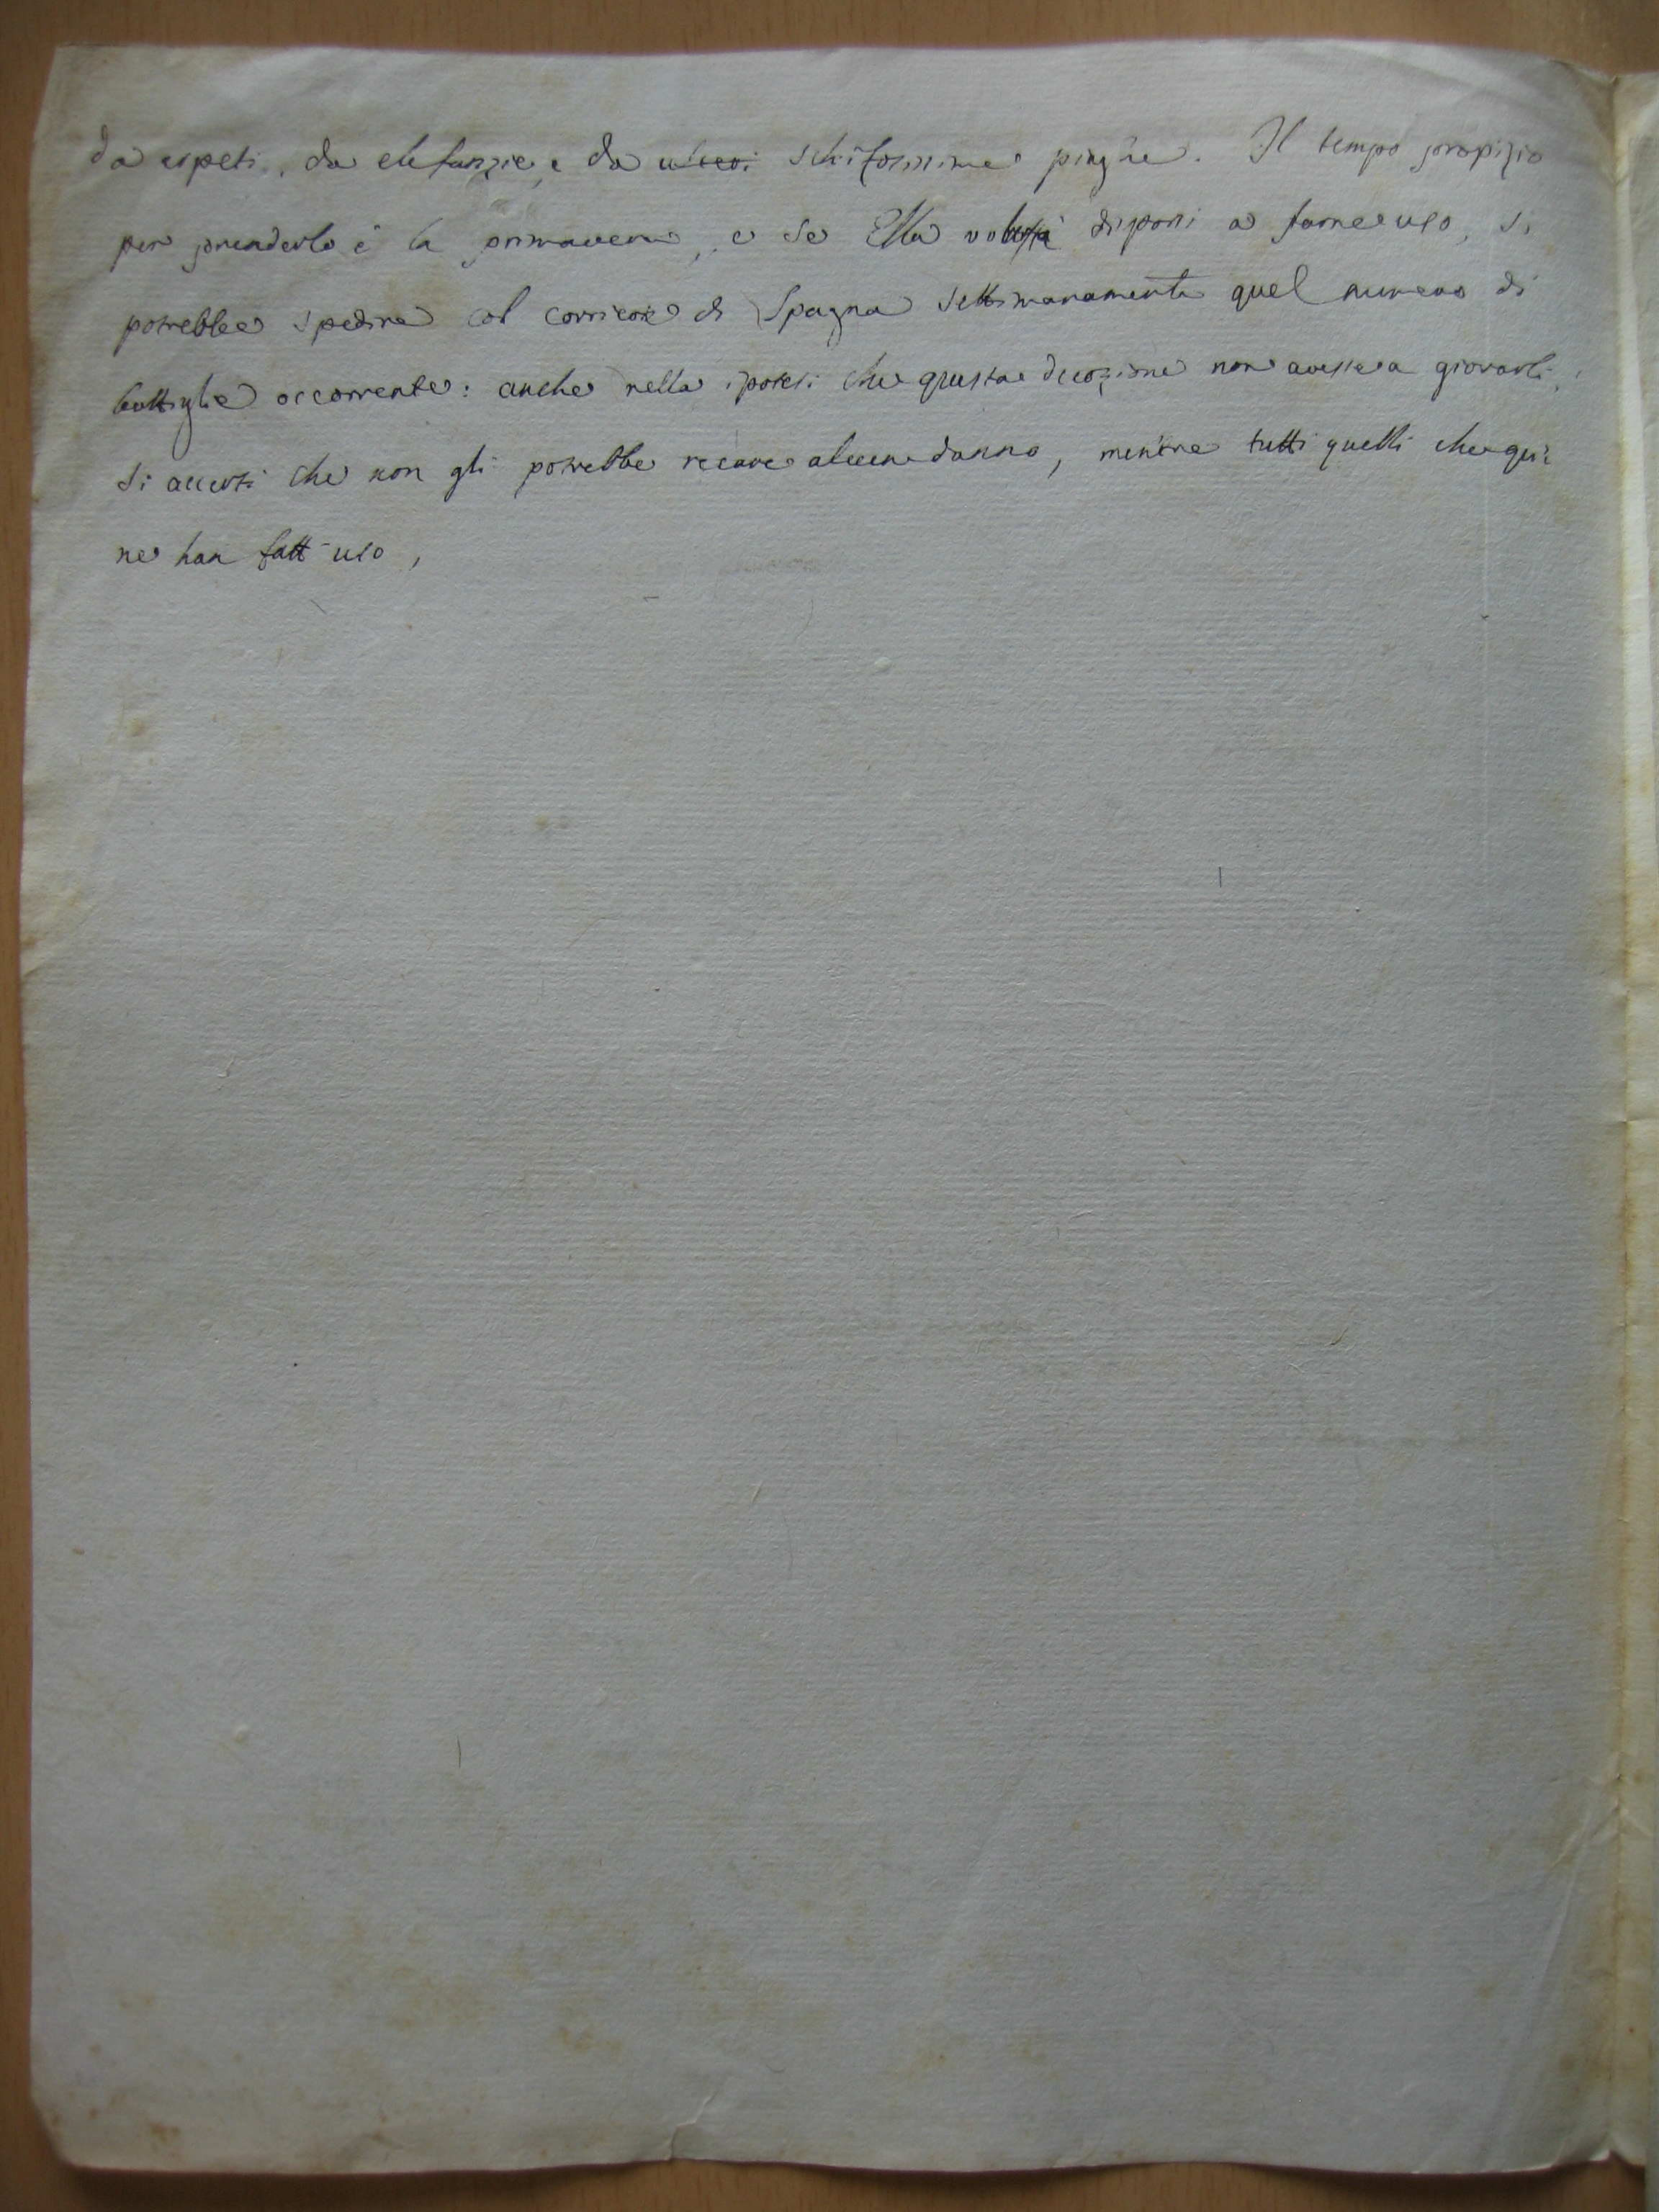 da erpeti, da elefanzie, e da ulceri schifosissime piaghe. Il tempo propizio
per prenderlo è la primavera, e se Ella disporsi a farne uso, si
potrebbe spedire col corriere di Spagna settimanamente quel numero di
bottiglie occorrente: anche nella ipotesi che questa decozione non avesse a giovarli,
si accerti che non gli potrebbe recare alcun danno, mentre tutti quelli che qui
ne han fatt uso,